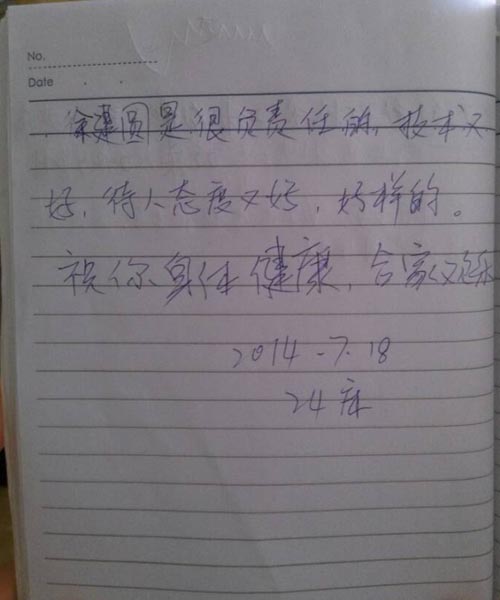 No.
Date
徐建圆是很负责任的,技术又
好,待人态度又好,好样的。
祝你身体健康,合家欢乐
2014-7.18
24床